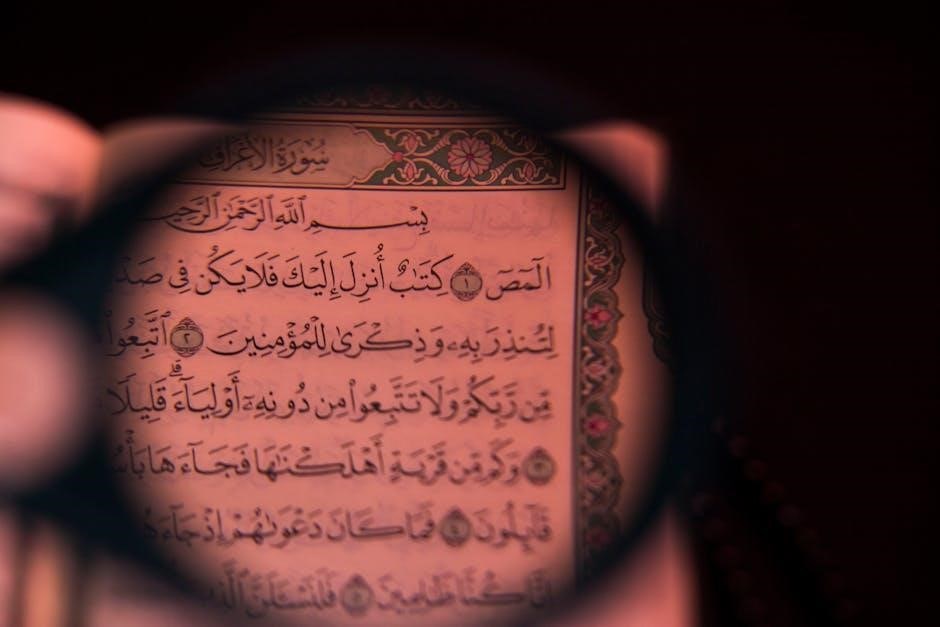 سُورَةُ الأَعْرَافِ
بِسْمِ ٱللَّهِ ٱلرَّحْمَٰنِ ٱلرَّحِيمِ
الٓمٓصٓ ١ كِتَٰبٌ أُنزِلَ إِلَيْكَ فَلَا يَكُن فِى
لِتُنذِرَ بِهِۦ وَذِكْرَىٰ لِلْمُؤْمِنِينَ ٢ ٱتَّبِعُوا۟
مِّن رَّبِّكُمْ وَلَا تَتَّبِعُوا۟ مِن دُونِهِۦٓ أَوْلِيَآءَ ۗ قَلِيلًا
٣ وَكَم مِّن قَرْيَةٍ أَهْلَكْنَٰهَا فَجَآءَهَا
قَآئِلُونَ ٤ فَمَا كَانَ دَعْوَىٰهُمْ إِذْ
إِنَّا كُنَّا ظَٰلِمِينَ ٥ فَلَنَسْـَٔلَنَّ